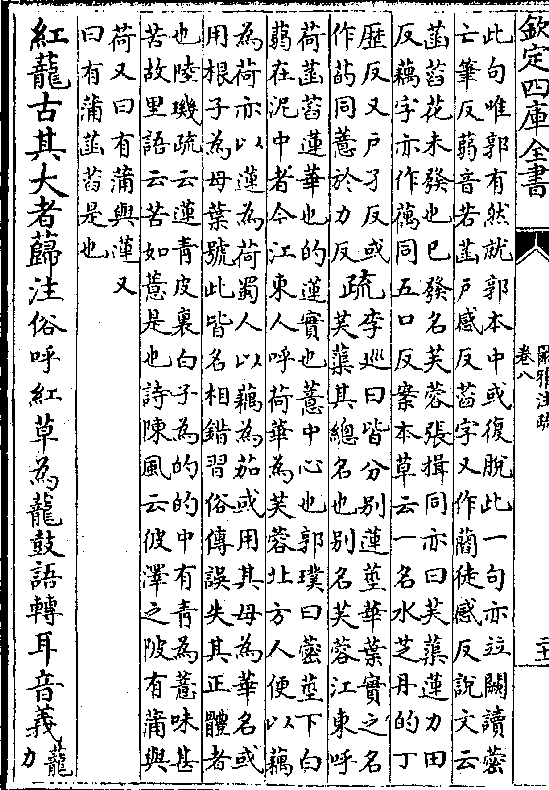 欽定四庫全書
爾雅注疏
卷八
二十一
此句唯郭有然就郭本中或復脫此一句亦竝闕讀蔤
亡筆反蒻音若菡戸感反萏字又作䓿徒感反説文云
菡萏花未發也已發名芙蓉張揖同亦曰芙蕖蓮力田
反藕字亦作蕅同五口反案本草云一名水芝丹的丁
歴反又戸了反或
作菂同薏於力反
疏
李巡曰皆分别蓮莖華葉實之名
芙蕖其總名也别名芙蓉江東呼
荷菡萏蓮華也的蓮實也薏中心也郭璞曰蔤莖下白
蒻在泥中者今江東人呼荷華為芙蓉北方人便以藕
為荷亦以蓮為荷蜀人以藕為茄或用其母為華名或
用根子為母葉號此皆名相錯習俗傳誤失其正體者
也陸璣疏云蓮青皮裏白子為的的中有青為薏味甚
苦故里語云苦如薏是也詩陳風云彼澤之陂有蒲與
荷又曰有蒲與蓮又
曰有蒲菡萏是也
紅蘢古其大者蘬注俗呼紅草為蘢鼓語轉耳音義蘢
力